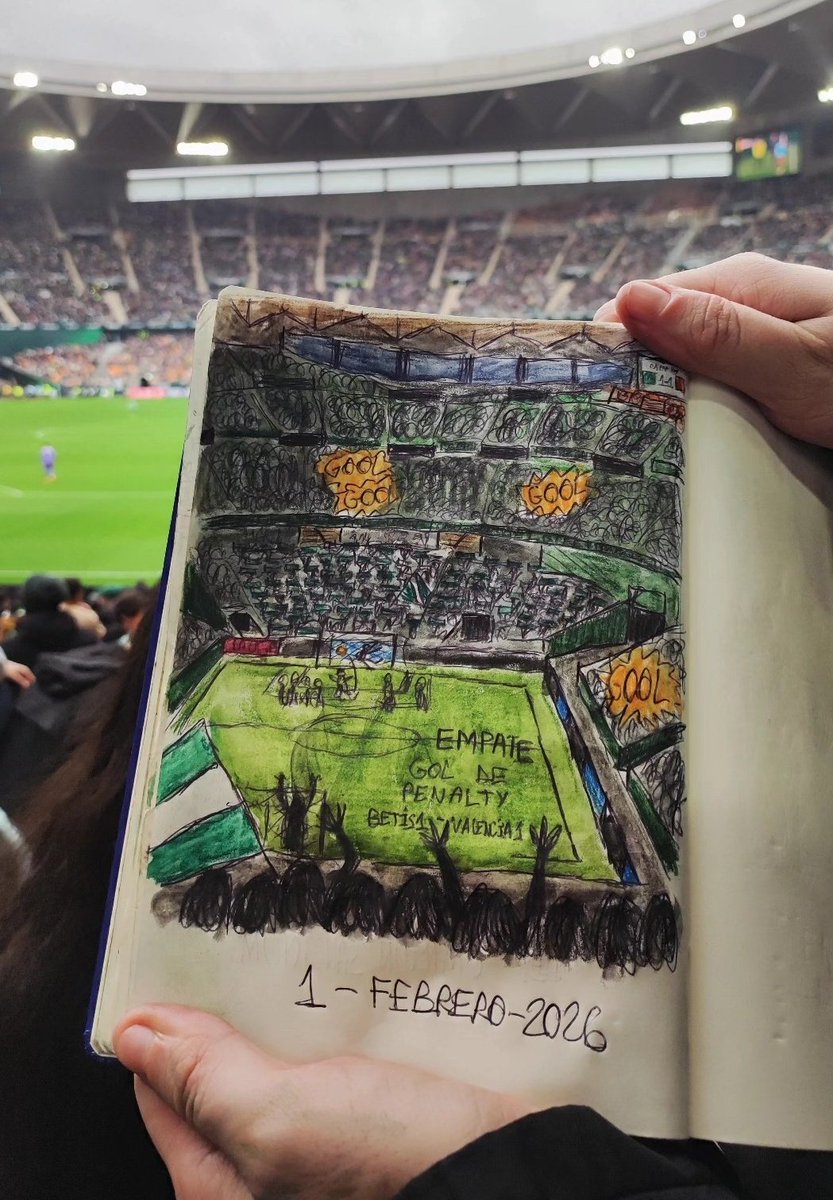 1-1
GOOL
GOOL
GOOL
GOOL
EMPATE
GOL DE
PENALTY
BETIS 1 - VALENCIA 1
1 - FEBRERO - 2026